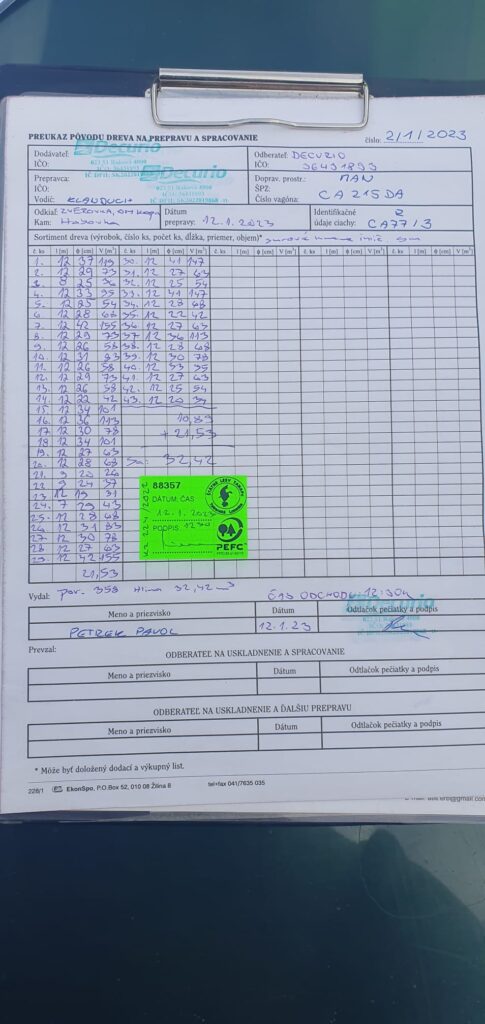 PREUKAZ PÔVODU DREVA NA PREPRAVU A SPRACOVANIE
číslo: 2/1/2023
Dodávateľ:
Decurio
023 51 Raková
IČO:
Odberateľ: DECURIO
IČO: 36491893
Prepravca:
Decurio
IČO:
Vodič: KLAUDUCH
Doprav. prostr.: MAN
ŠPZ:
Číslo vagóna: CA 215DA
Odkiaľ: ZVEROVKA,
Kam:
Dátum prepravy: 12.1.2023
Identifikačné údaje ciachy: 2 CA77/3
Sortiment dreva (výrobok, číslo ks, počet ks, dĺžka, priemer, objem)*
č. ks l [m] ϕ [cm] V [m³] č. ks l [m] ϕ [cm] V [m³] č. ks l [m] ϕ [cm] V [m³] č. ks l [m] ϕ [cm] V [m³]
1. 12 37 119 30. 12 41 147
2. 12 29 73 31. 12 27 63
3. 8 25 36 32. 12 25 54
4. 12 33 95 33. 12 41 147
5. 12 25 54 34. 12 28 68
6. 12 28 68 35. 12 22 42
7. 12 42 155 36. 12 27 63
8. 12 29 73 37 12 36 113
9. 12 26 58 38. 12 28 68
10. 12 31 83 39. 12 30 78
11. 12 26 58 40. 12 33 95
12. 12 29 73 41. 12 27 63
13. 12 26 58 42. 12 25 54
14. 12 22 42 43. 12 20 34
15. 12 34 101
16. 12 36 113 10,89
17 12 30 78 + 21,53
18 12 34 101
19. 12 27 63 32,42
20. 12 28 68
21. 9 20 26
22 9 24 37
23 12 19 31
24. 7 29 43
25. 12 28 68
26. 12 31 83
27 12 30 78
28 12 27 63
29. 12 42 155
21,53
88357
DÁTUM: ČAS
12.1.2023
PODPIS: 1230
ŠTÁTNE LESY TANAPU
PEFC
Vydal: por. 358 32,42 m3 ČAS ODCHODU 12:30h
Meno a priezvisko Dátum Odtlačok pečiatky a podpis
PETREK PAVOL 12.1.23
Decurio
Prevzal:
ODBERATEĽ NA USKLADNENIE A SPRACOVANIE
Meno a priezvisko Dátum Odtlačok pečiatky a podpis
ODBERATEĽ NA USKLADNENIE A ĎALŠIU PREPRAVU
Meno a priezvisko Dátum Odtlačok pečiatky a podpis
* Môže byť doložený dodací a výkupný list.
226/1 EkonSpo, P.O.Box 52, 010 08 Žilina 8 tel+fax 041/7635 035